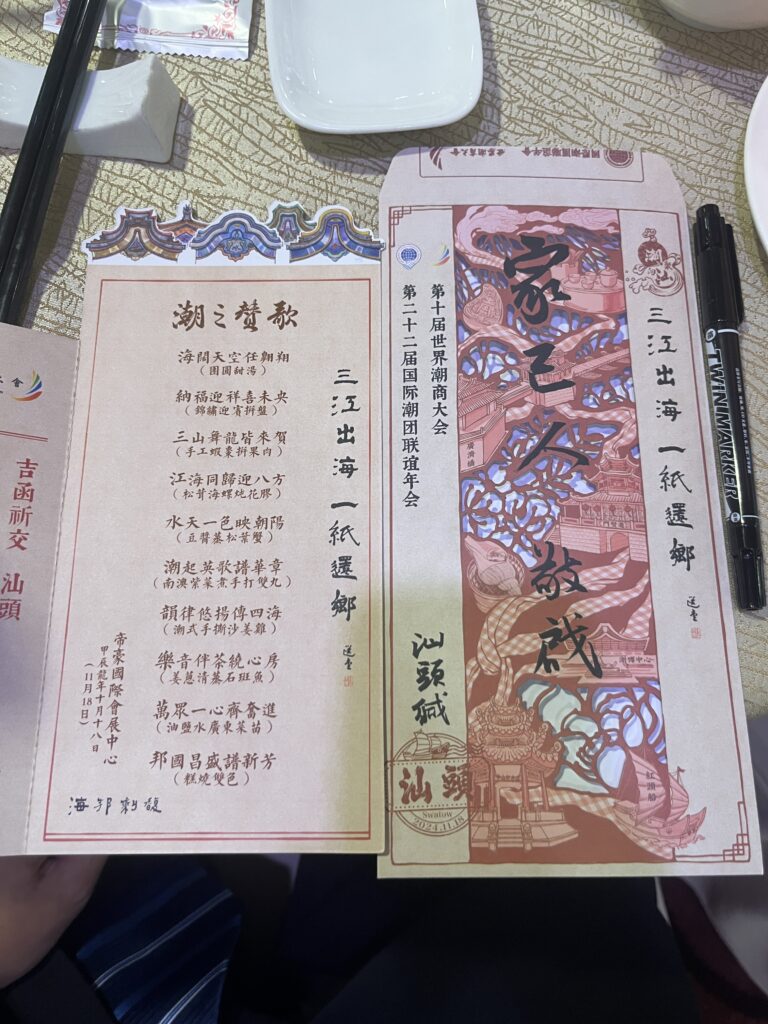 吉函祈交 汕頭
潮之贊歌
海闊天空任翱翔
(團圓甜湯)
納福迎祥喜未央
(錦繡迎賓拼盤)
三山舞龍皆來賀
(手工蝦棗拼果肉)
江海同歸迎八方
(松茸海螺炖花膠)
水天一色映朝陽
(豆醬蒸松葉蟹)
潮起英歌譜華章
(南澳紫菜煮手打雙丸)
韻律悠揚傳四海
(潮式手撕沙姜雞)
樂音伴茶繞心房
(姜蔥清蒸石斑魚)
萬眾一心齊奮進
(油鹽水廣東菜苗)
邦國昌盛譜新芳
(糕燒雙色)
三江出海 一紙還鄉
帝豪國際會展中心
甲辰龍年十月十八日
(11月18日)
第十届世界潮商大会
第二十二届国际潮团联谊年会
家己人敬啟
潮汕
三江出海 一紙還鄉
廣濟橋
紅頭船
汕頭緘
汕頭
Swatow
2024.11.18
TWINMARKER